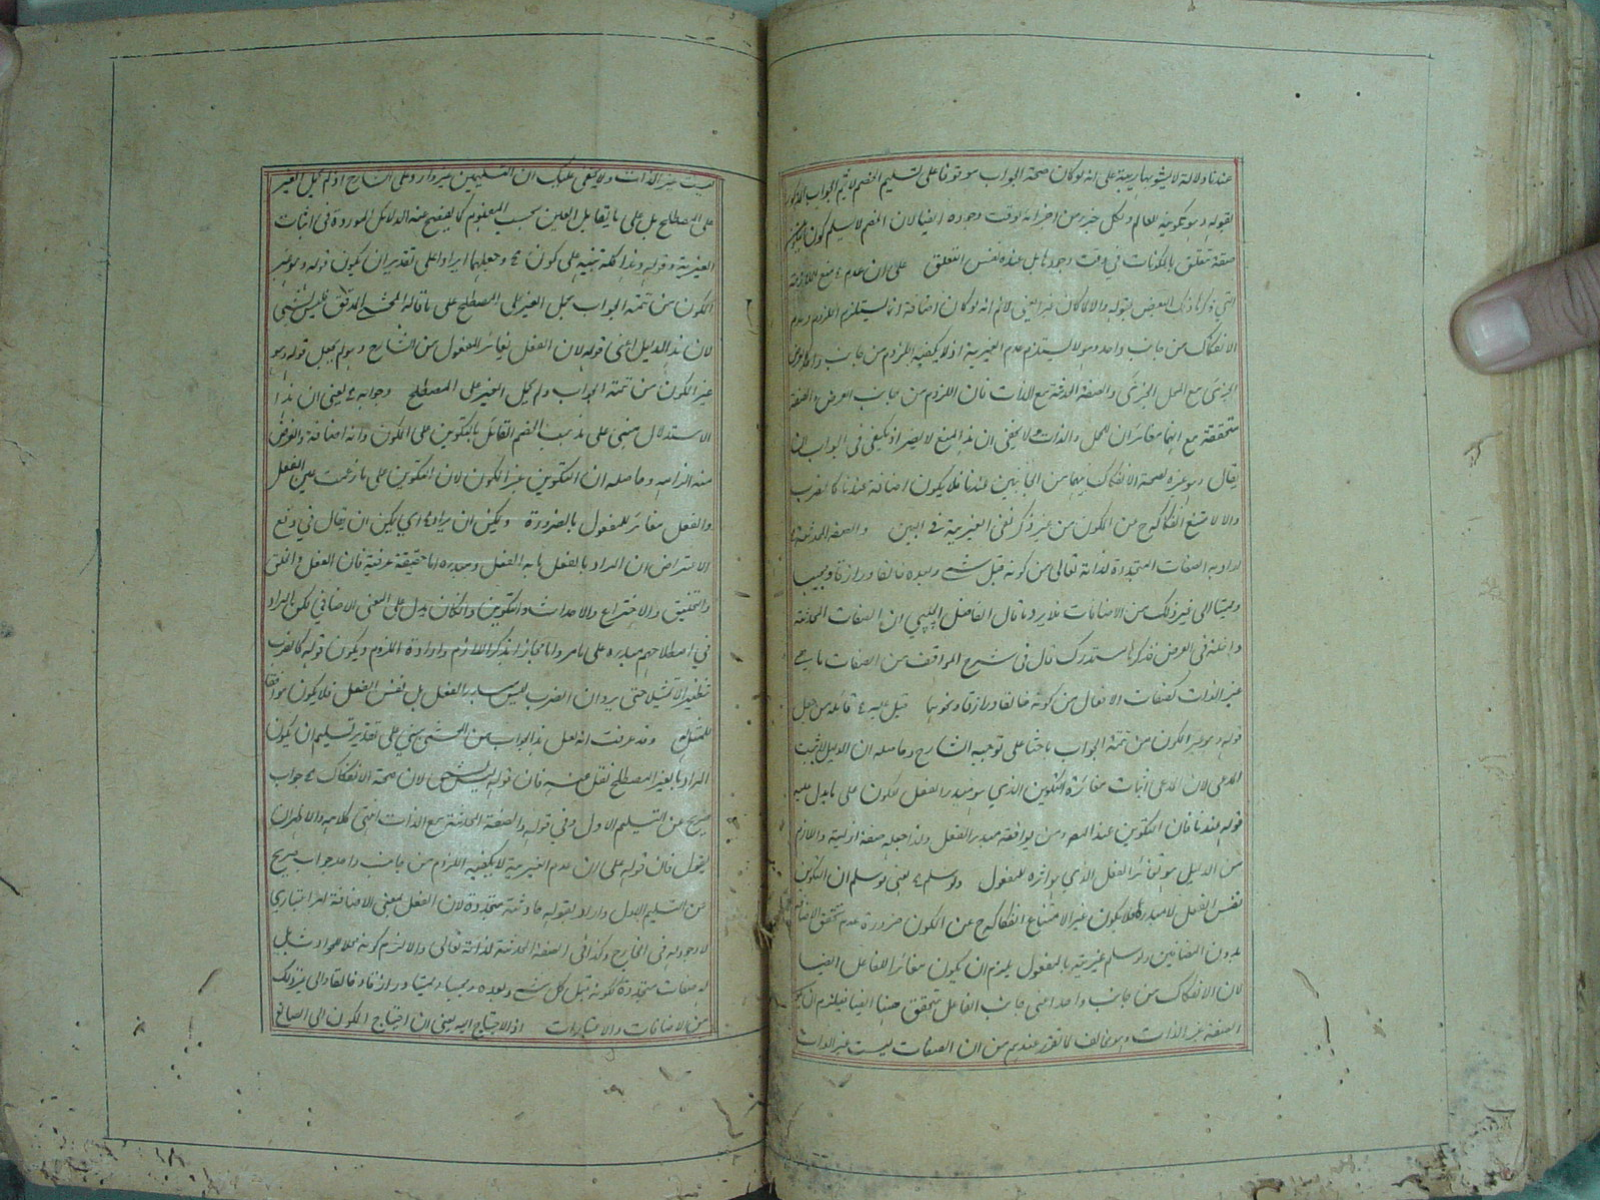 عندنا دلالة لا يشوبها ريبة على انه لو كان صحة الجواب موقوفا على تسليم الخصم لا يتم الجواب
بقوله وهو تكوينه للعالم ولكل جزء من اجزائه لوقت وجوده ايضا لان الخصم لا يسلم كون التكوين
صفة تتعلق بالمكونات في وقت وجودها بل عنده نفس التعلق على ان عدم منع الملازمة
التي ذكرها ذلك البعض بقوله والا لكان يعني لانم انه لو كان اضافة انما يستلزم اللزوم وعدم
الانفكاك من جانب واحد وهو لا يستلزم عدم الغيرية اذ لا يكفيه اللزوم من جانب واحد كالعرض
الجزئي مع المحل الجزئي والصفة المحدثة مع الذات فان اللزوم من جانب العرض والصفة
متحققة مع انهما مغائران للمحل والذات ولا يخفى ان هذا المنع لا يضر اذ يكفي في الجواب ان
يقال وهو غيره لصحة الانفكاك بينهما من الجانبين عندنا فلا يكون اضافة عندنا كالضرب
والا لامتنع انفكاكه ح من المكون من غير ذكر نفي الغيرية في البين والصفة المحدثة
اراد به الصفات المتجددة لذاته تعالى من كونه قبل شيء وبعده خالقا ورازقا ومحييا
ومميتا الى غير ذلك من الاضافات فلا يرد ما قال الفاضل الچلپي ان الصفات المحدثة
داخلة في العرض فذكرها مستدرك قال في شرح المواقف من الصفات ما هي
غير الذات كصفات الافعال من كونه خالقا ورازقا ونحوهما قيل عليه قائله من جعل
قوله وهو غير المكون من تتمة الجواب باحثا على توجيه الشارح وحاصله ان الدليل لا يثبت
المدعى لان المدعى اثبات مغائرة التكوين الذي هو مبدء الفعل للمكون على ما يدل عليه
قوله عندنا فان التكوين عند المص ومن يوافقه مبدء الفعل ولذا جعله صفة ازلية واللازم
من الدليل هو تغائر الفعل الذي هو اثره للمفعول ولو سلم يعني لو سلم ان التكوين
نفس الفعل لا مبدءه فلا يكون غيرا لامتناع انفكاكه ح عن المكون ضرورة عدم تحقق الاضافة
بدون المضافين ولو سلم غيريته بالمفعول يلزم ان يكون مغائرا للفاعل ايضا
لان الانفكاك من جانب واحد اعني جانب الفاعل متحقق ههنا ايضا فيلزم ان يكون
الصفة غير الذات وهو مخالف لما تقرر عندهم من ان الصفات ليست عين الذات
ليست غير الذات ولا يخفى عليك ان التسليمين غير وارد على الشارح اذ لم يحمل الغير
على المصطلح بل على ما يقابل العين بحسب المفهوم كما يفصح عنه الدلائل الموردة في اثبات
الغيرية وقوله وهذا كله تنبيه على كون وجعلهما ايرادا على تقدير ان يكون قوله وهو غير
المكون من تتمة الجواب بحمل الغير على المصطلح على ما قاله المحشي المدقق فليس بشيء
لان هذا الدليل اعني قوله لان الفعل يغائر للمفعول من الشارح وهو لم يجعل قوله وهو
غير المكون من تتمة الجواب ولم يحمل الغير على المصطلح وجوابه يعني ان هذا
الاستدلال مبني على مذهب الخصم القائل بالتكوين على المكون وانه اضافة والغرض
منه الزامه وحاصله ان التكوين غير المكون لان التكوين على ما زعمت عين الفعل
والفعل مغائر للمفعول بالضرورة ويمكن ان يراد اي يمكن ان يقال في دفع
الاعتراض ان المراد بالفعل ما به الفعل ومبدءه اما حقيقة عرفية فان الفعل والخلق
والتخليق والاختراع والاحداث والتكوين وان كان يدل على المعنى الاضافي لكن المراد
في اصطلاحهم مبدءه على ما مر واما مجازا بذكر اللازم وارادة الملزوم ويكون قوله كالضرب
تنظيرا لا تمثيلا حتى يرد ان الضرب ليس مبدء الفعل بل نفس الفعل فلا يكون موافقا
للممثل وقد عرفت انه لعل هذا الجواب من المحشي مبني على تقدير تسليم ان يكون
المراد بالغير المصطلح نقل عنه فان قوله لان صحة الانفكاك جواب
صريح عن التسليم الاول وفي قوله والصفة المحدثة مع الذات انتهى كلامه والاظهر ان
يقول فان قوله على ان عدم الغيرية لا يكفيه اللزوم من جانب واحد جواب صريح
عن التسليم الاول واراد بقوله حادثة متجددة لان الفعل بمعنى الاضافة امر اعتباري
لا وجود له في الخارج وكذا في الصفة المحدثة لذاته تعالى والا لزم كونه محلا للحوادث بل
له صفات متجددة ككونه قبل كل شيء وبعده ومحييا ومميتا ورازقا وخالقا والى غير ذلك
من الاضافات والاعتبارات اذ الاحتياج اليه يعني ان احتياج المكون الى الصانع